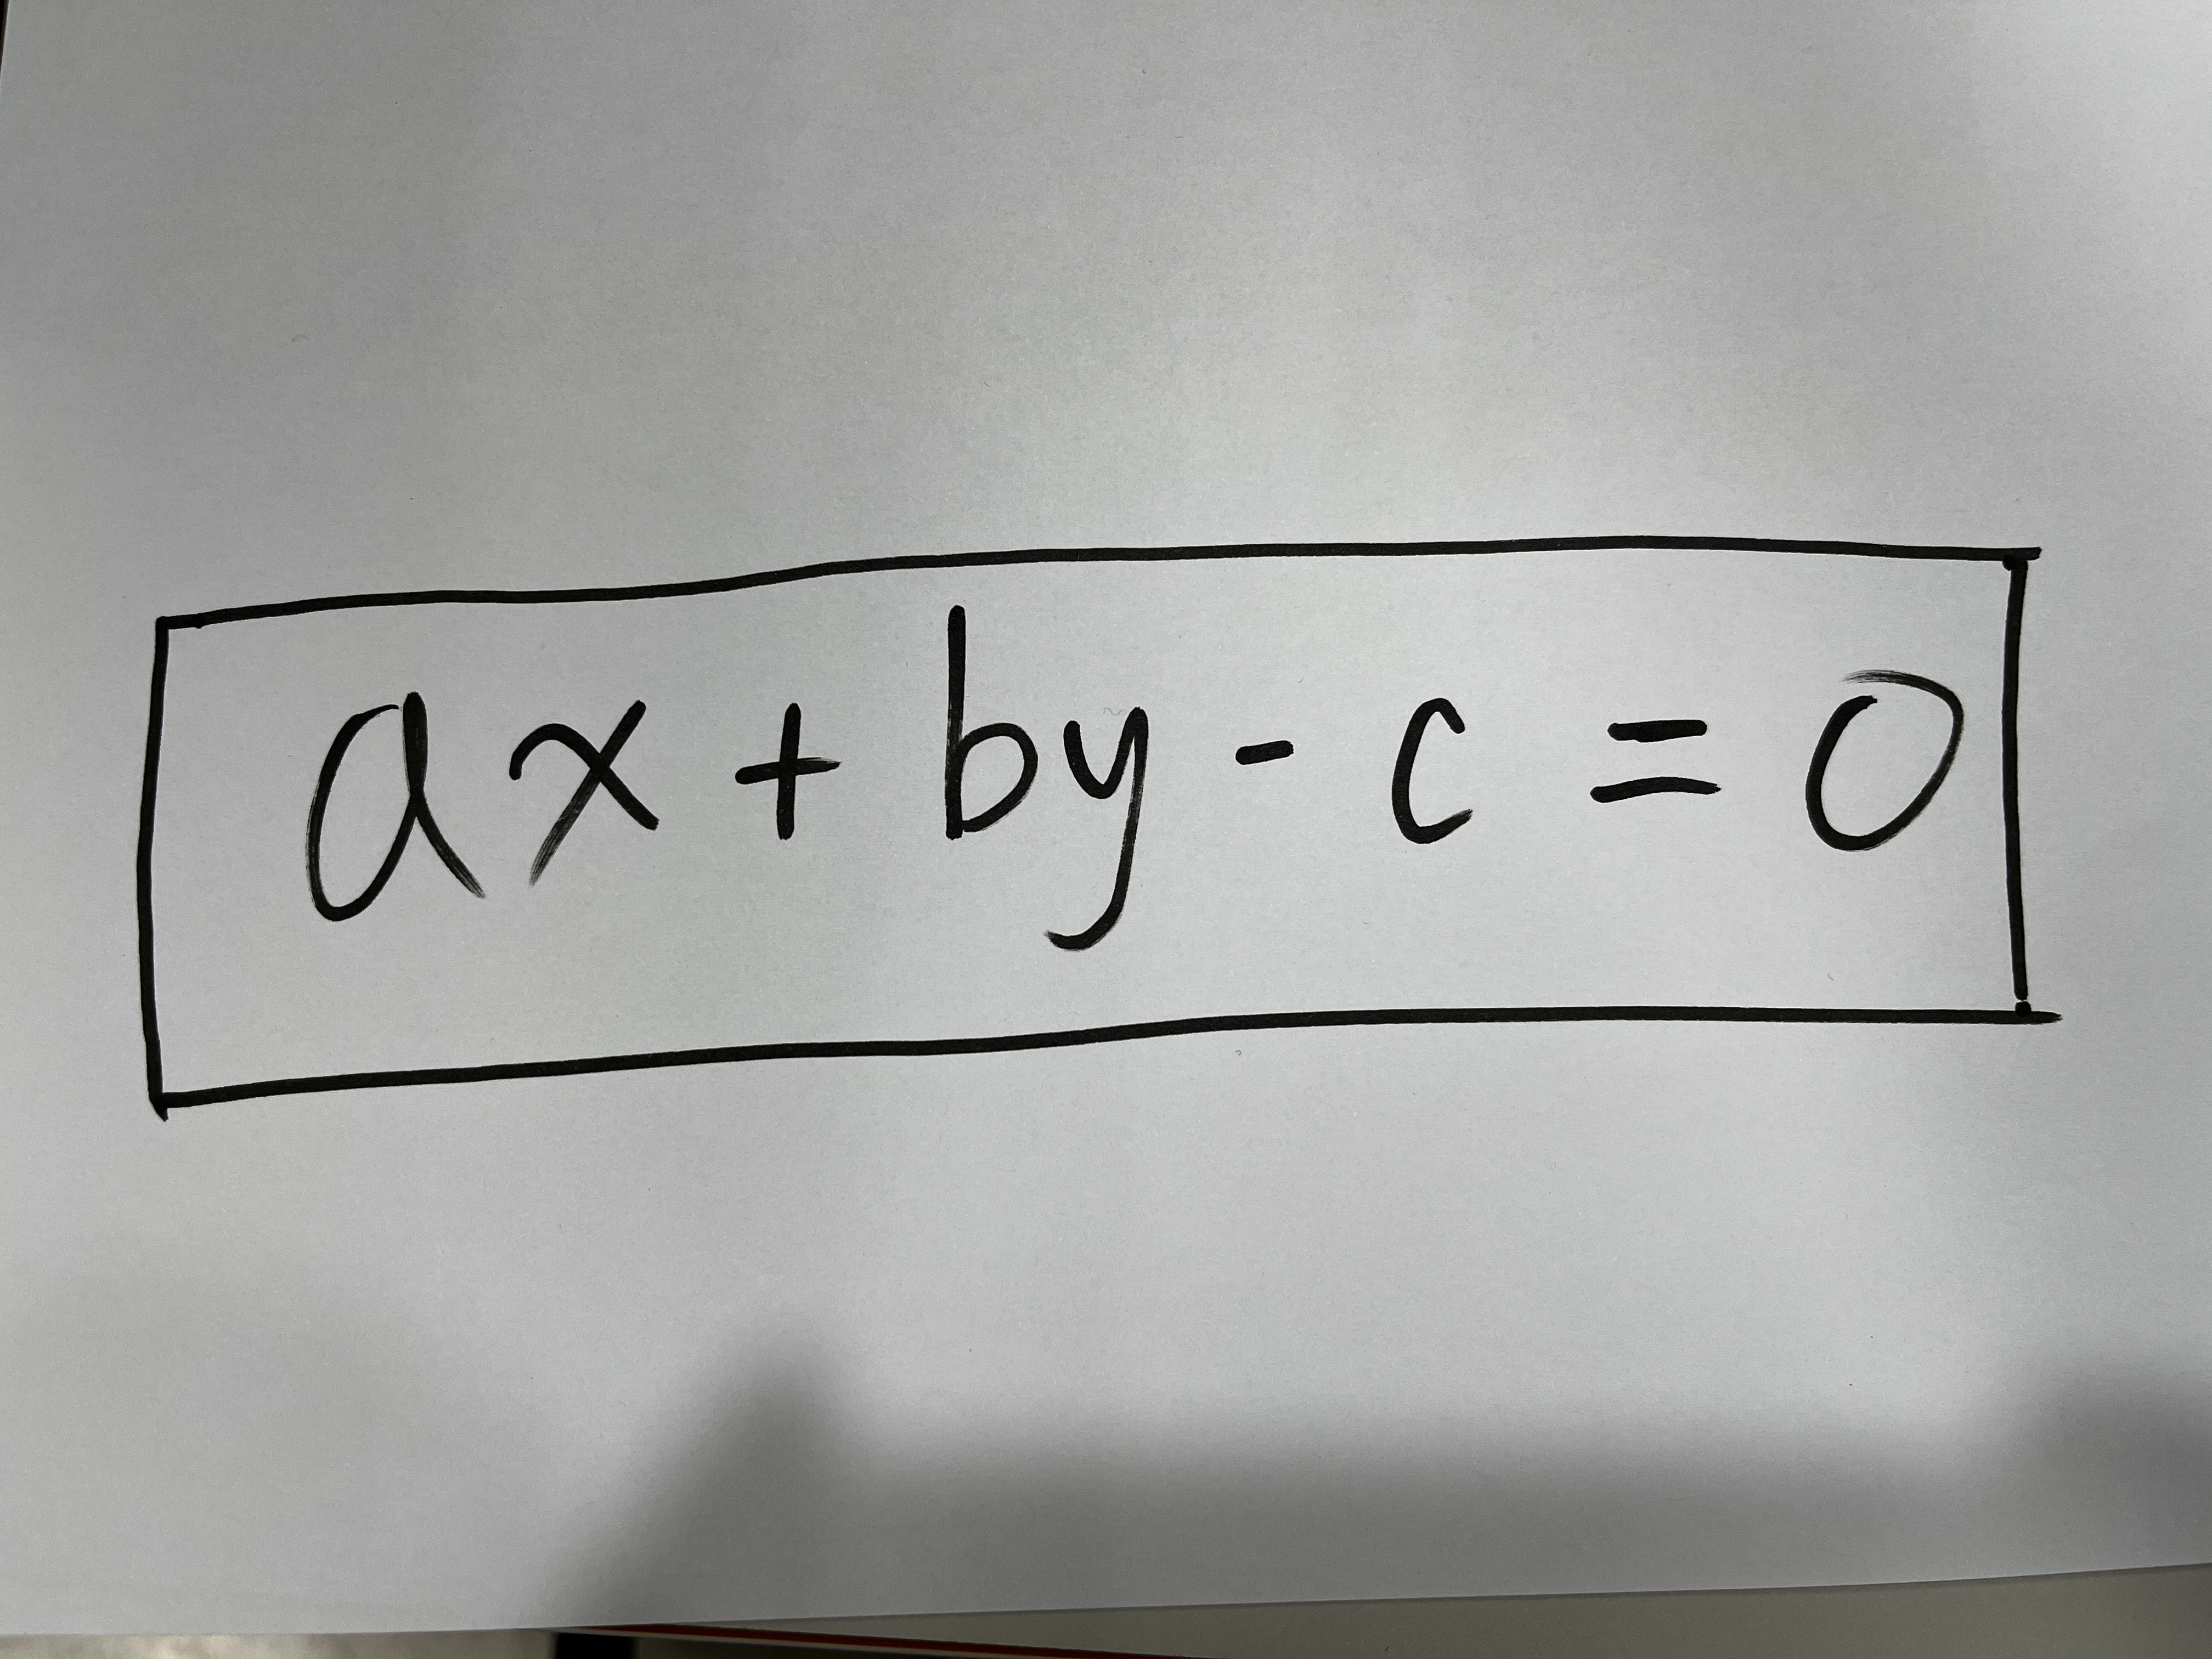 ax + by - c = 0